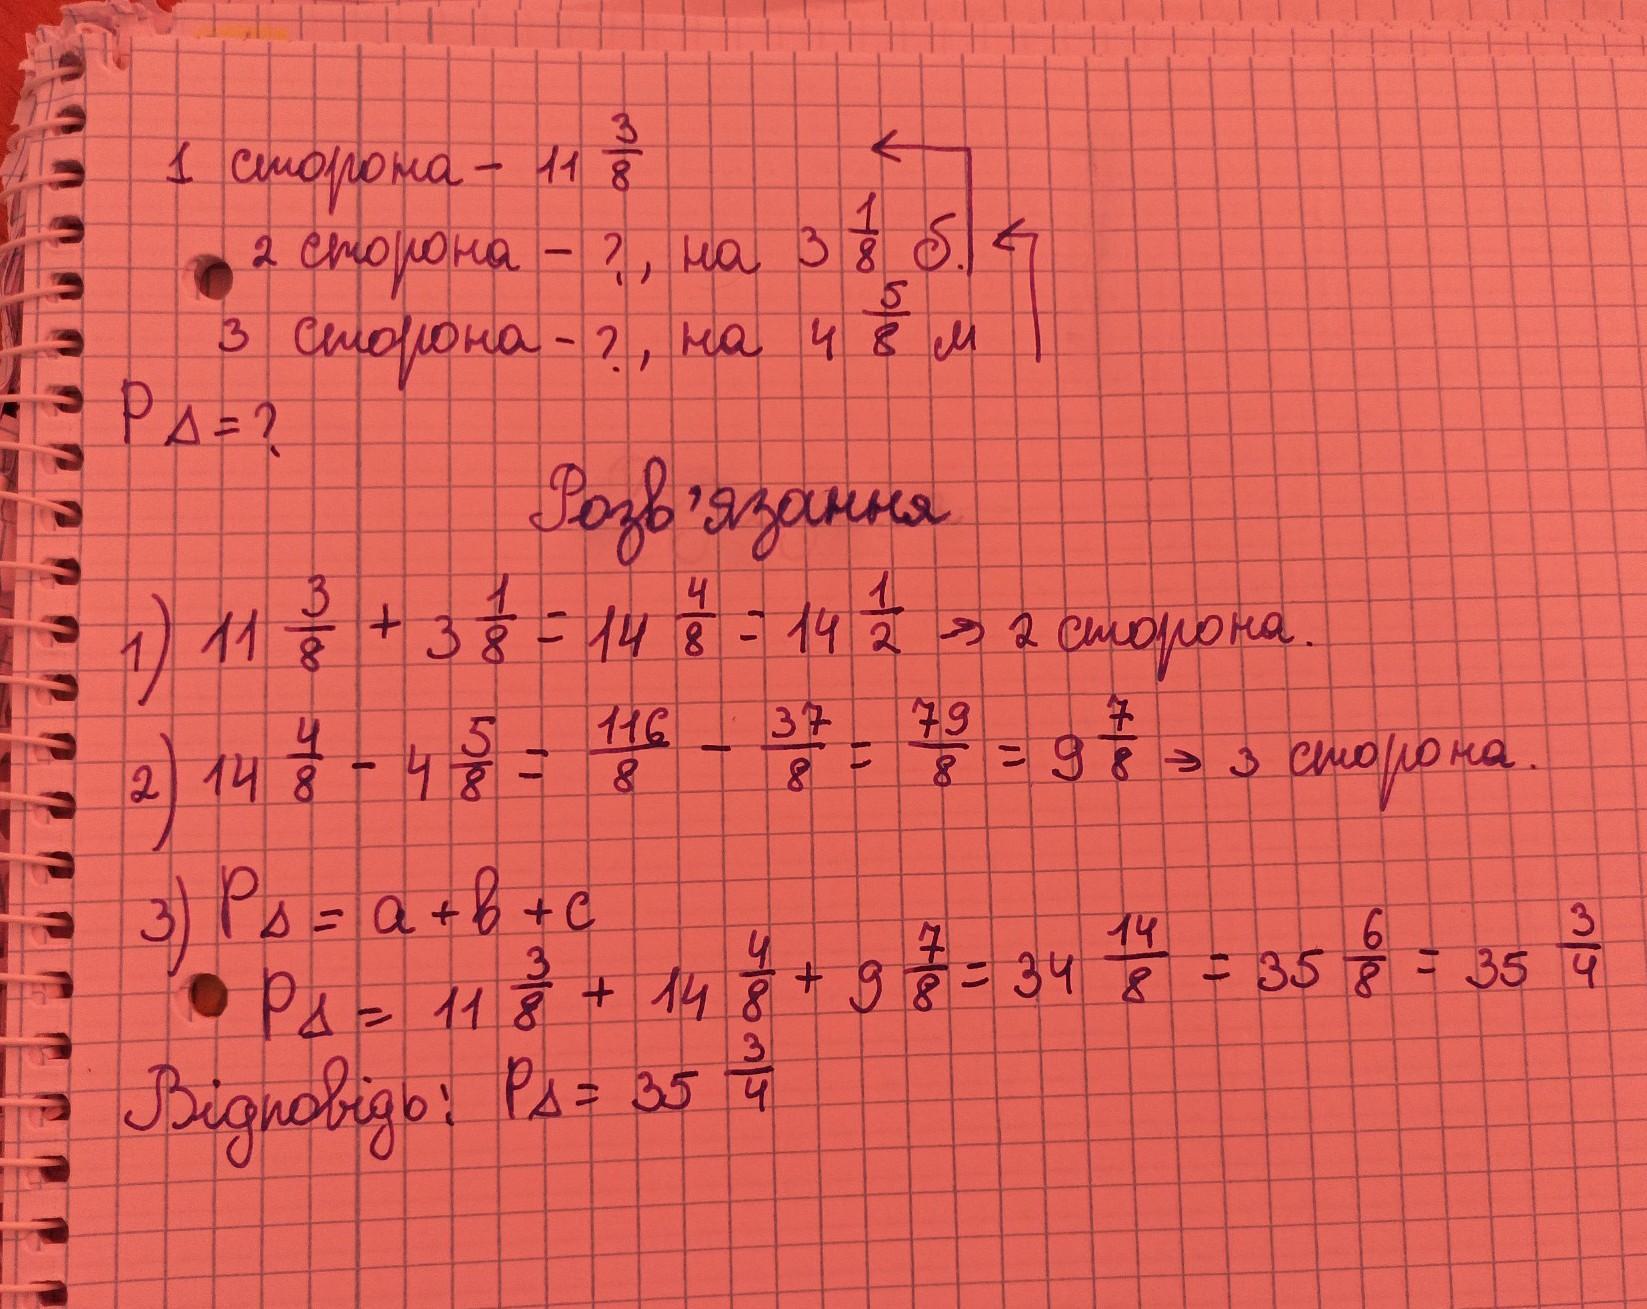 1 сторона - 11 3/8
2 сторона - ?, на 3 1/8 б.
3 сторона - ?, на 4 5/8 м
P Δ = ?
Розв'язання
1) 11 3/8 + 3 1/8 = 14 4/8 = 14 1/2 → 2 сторона.
2) 14 4/8 - 4 5/8 = 116/8 - 37/8 = 79/8 = 9 7/8 → 3 сторона.
3) P Δ = a + b + c
P Δ = 11 3/8 + 14 4/8 + 9 7/8 = 34 14/8 = 35 6/8 = 35 3/4
Відповідь: P Δ = 35 3/4